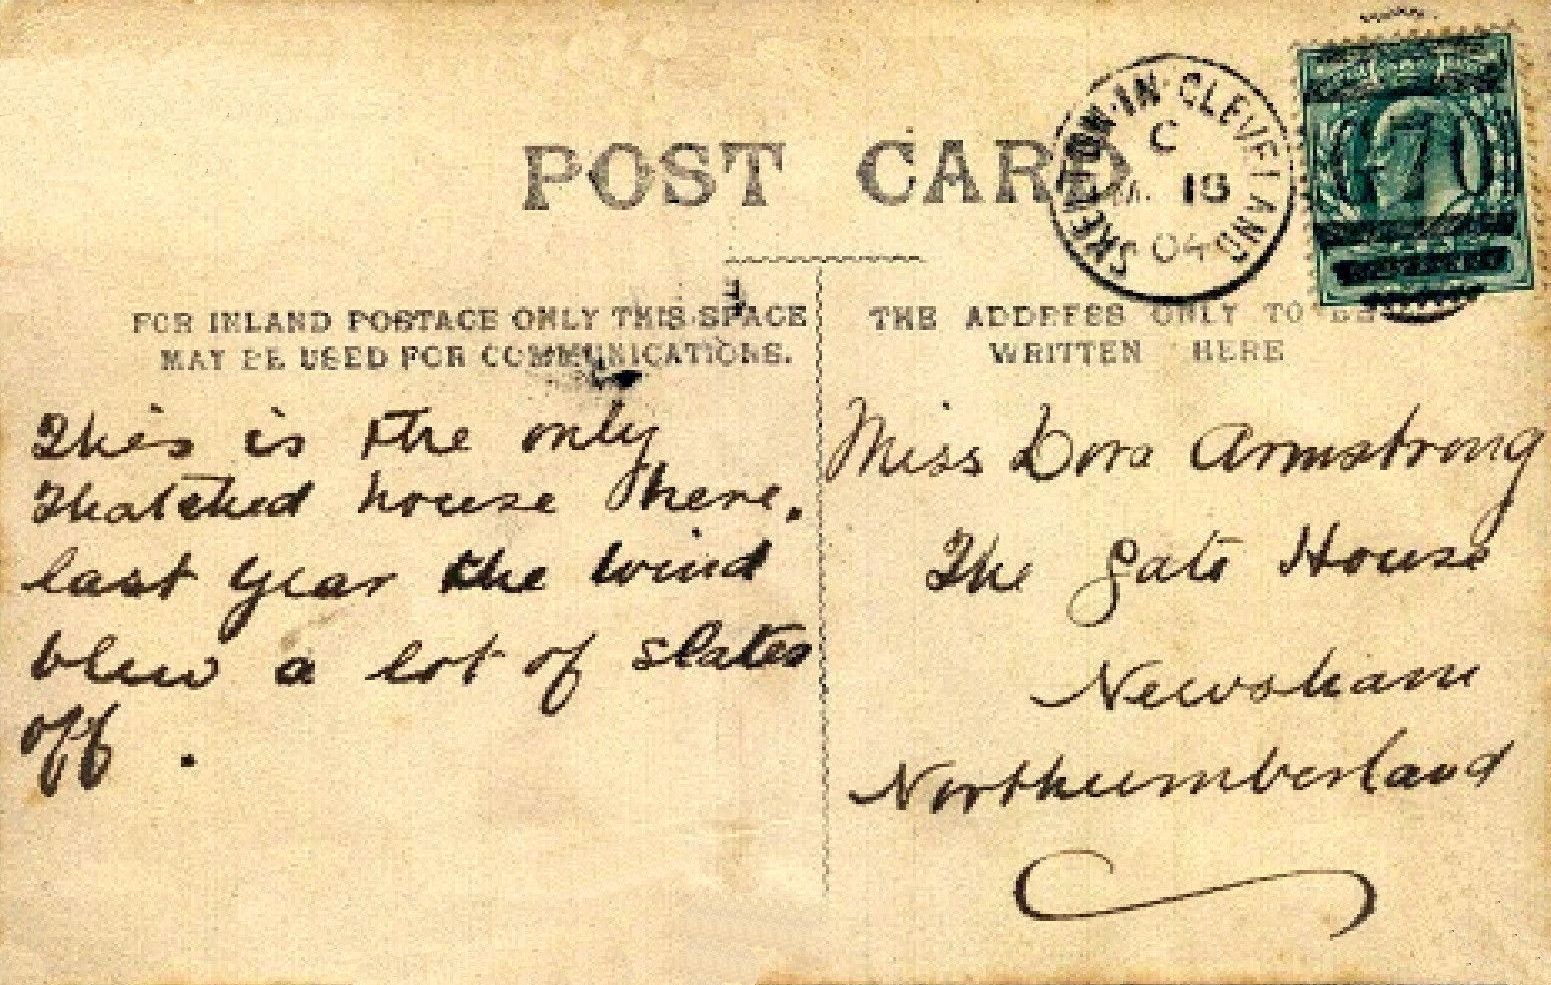 POST CARD
SKELTON-IN-CLEVELAND
C
04
FOR INLAND POSTAGE ONLY THIS SPACE
MAY BE USED FOR COMMUNICATIONS.
THE ADDRESS ONLY TO BE
WRITTEN HERE
This is the only
thatched house here.
last year the wind
blew a lot of slates
off.
Miss Dora Armstrong
The Gate House
Newsham
Northumberland